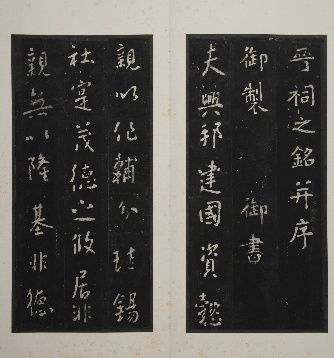 晉祠之銘并序
御製 御書
夫興邦建國資懿
親以作輔分珪錫
社寔茂德之攸居非
親無以隆基非德